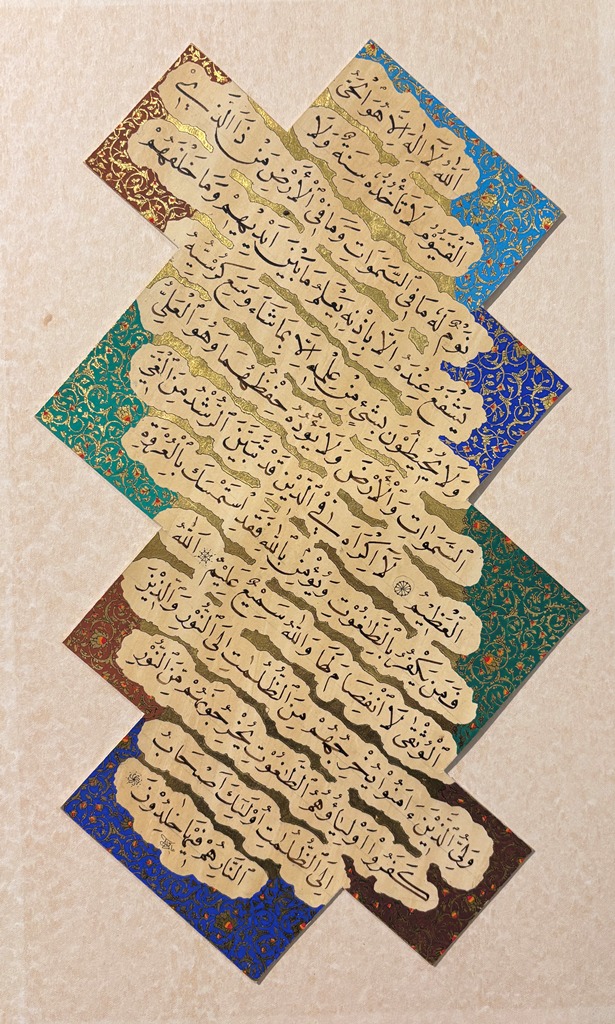 اَللّٰهُ لَا اِلٰهَ اِلَّا هُوَ الْحَيُّ
الْقَيُّومُ لَا تَأْخُذُهُ سِنَةٌ وَلَا
نَوْمٌ لَهُ مَا فِي السَّمٰوَاتِ وَمَا فِي الْاَرْضِ مَنْ ذَا الَّذِي
يَشْفَعُ عِنْدَهُ اِلَّا بِاِذْنِهِ يَعْلَمُ مَا بَيْنَ اَيْدِيهِمْ وَمَا خَلْفَهُمْ
وَلَا يُحِيطُونَ بِشَيْءٍ مِنْ عِلْمِهِ اِلَّا بِمَا شَاءَ وَسِعَ كُرْسِيُّهُ
السَّمٰوَاتِ وَالْاَرْضَ وَلَا يَؤُدُهُ حِفْظُهُمَا وَهُوَ الْعَلِيُّ
الْعَظِيمُ لَا اِكْرَاهَ فِي الدِّينِ قَدْ تَبَيَّنَ الرُّشْدُ مِنَ الْغَيِّ
فَمَنْ يَكْفُرْ بِالطَّاغُوتِ وَيُؤْمِنْ بِاللّٰهِ فَقَدِ اسْتَمْسَكَ بِالْعُرْوَةِ
الْوُثْقٰى لَا انْفِصَامَ لَهَا وَاللّٰهُ سَمِيعٌ عَلِيمٌ اَللّٰهُ
وَلِيُّ الَّذِينَ اٰمَنُوا يُخْرِجُهُمْ مِنَ الظُّلُمٰتِ اِلَى النُّورِ وَالَّذِينَ
كَفَرُوا اَوْلِيَاؤُهُمُ الطَّاغُوتُ يُخْرِجُونَهُمْ مِنَ النُّورِ
اِلَى الظُّلُمٰتِ اُولٰئِكَ اَصْحَابُ
النَّارِ هُمْ فِيهَا خَالِدُونَ